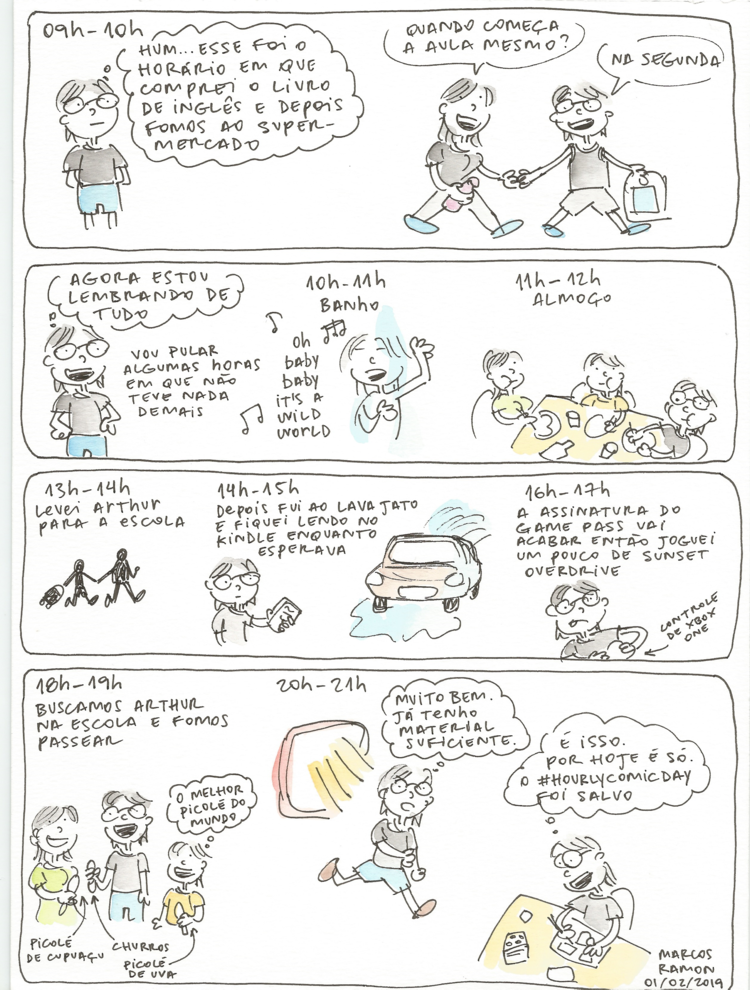 09h-10h
HUM...ESSE FOI O
HORÁRIO EM QUE
COMPREI O LIVRO
DE INGLÊS E DEPOIS
FOMOS AO SUPER-
MERCADO
QUANDO COMEÇA
A AULA MESMO?
NA SEGUNDA
AGORA ESTOU
LEMBRANDO DE
TUDO
VOU PULAR
ALGUMAS HORAS
EM QUE NÃO
TEVE NADA
DEMAIS
10h-11h
BANHO
Oh
baby
baby
it's A
WILD
WORLD
11h-12h
ALMOÇO
13h-14h
Levei Arthur
PARA A ESCOLA
14h-15h
DEPOIS FUI AO LAVA JATO
E FIQUEI LENDO NO
KINDLE ENQUANTO
ESPERAVA
16h-17h
A ASSINATURA DO
GAME PASS VAI
ACABAR ENTÃO JOGUEI
UM POUCO DE SUNSET
OVERDRIVE
CONTROLE
DE XBOX
ONE
18h-19h
BUSCAMOS ARTHUR
NA ESCOLA E FOMOS
PASSEAR
O MELHOR
PICOLÉ DO
MUNDO
PICOLÉ
DE CUPUAÇU
CHURROS
PICOLÉ
DE UVA
20h-21h
MUITO BEM.
JÁ TENHO
MATERIAL
SUFICIENTE.
É ISSO.
POR HOJE É SÓ.
O #HOURLYCOMICDAY
FOI SALVO
MARCOS
RAMON
01/02/2019